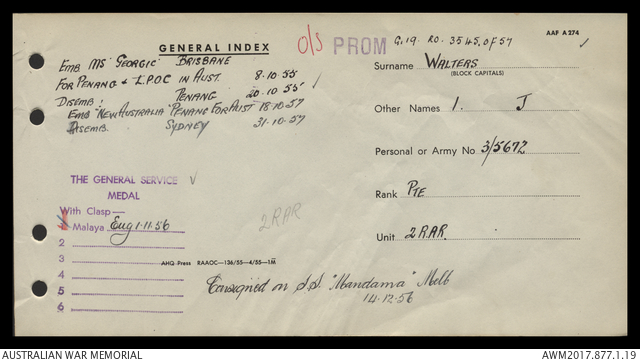 GENERAL INDEX
O/S
PROM
G.19. RO. 3545 OF 57
AAF A 274
EMB MS "GEORGIC" BRISBANE
FOR PENANG & L.P.O.C IN AUST. 8·10·55
DISEMB: PENANG 20·10·55
EMB "NEW AUSTRALIA" PENANG FOR AUST 18·10·57
DISEMB. SYDNEY 31·10·57
Surname WALTERS
(BLOCK CAPITALS)
Other Names I. J
Personal or Army No 3/5672
Rank PTE
Unit 2 R.A.R.
THE GENERAL SERVICE
MEDAL
With Clasp—
1 Malaya Eug 1·11·56
2
3
4
5
6
2RAR
AHQ Press RAAOC—136/55—4/55—1M
Consigned on S.S. "Mandama" Melb
14·12·56
AUSTRALIAN WAR MEMORIAL
AWM2017.877.1.19